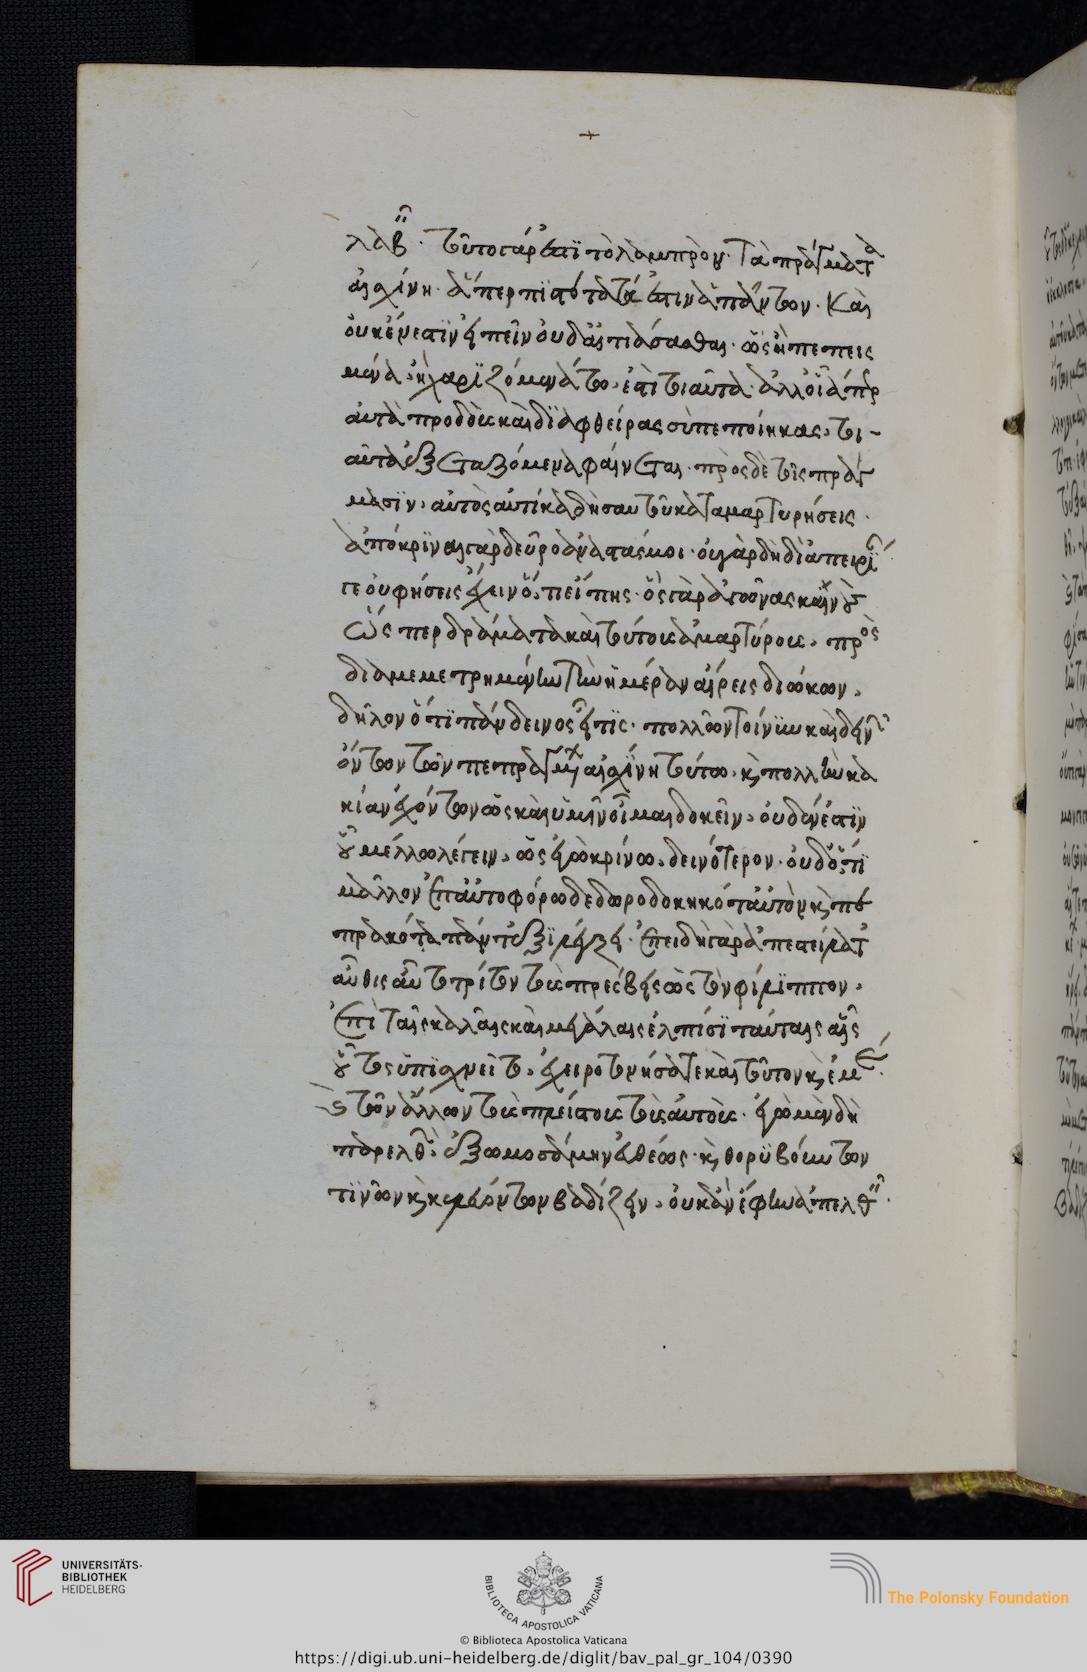 λαβεῖν. τοῦτο γάρ ἐστὶ τὸ λαμπρόν. Τὰ πράγματα
αἰσχίνη. ἅπερ πιστότατά ἐστιν ἁπάντων. Καὶ
οὐκ ἔνεστιν εἰπεῖν οὐδ' αἰτιάσασθαι. ὡς ἢ πεπεισ
μένα. ἢ χαριζόμενά τω. ἐστὶ τοιαῦτα. ἀλλ' οἷάπερ
αὐτὰ προδοὺς καὶ διαφθείρας σὺ πεποίηκας. τοι-
αῦτα ἐξεταζόμενα φαίνεται. πρὸς δὲ τοῖς πράγ
μασιν. αὐτὸς αὐτίκα δὴ σαυτοῦ καταμαρτυρήσεις.
ἀπόκριναι γὰρ δεῦρο ἀναστάς μοι. οὐ γὰρ δὴ δι' ἀπειρίαν
γε οὐ φήσεις ἔχειν ὅ τι εἴπης. ὃς γὰρ ἀγῶνας καινοὺς
ὥσπερ δράματα καὶ τούτους ἀμαρτύρους. πρὸς
διαμεμετρημένην τὴν ἡμέραν αἱρεῖς διώκων.
δῆλον ὅτι πάνδεινος εἶ τις. πολλῶν τοίνυν καὶ δεινῶν
ὄντων τῶν πεπραγμένων αἰσχίνη τούτω. καὶ πολλὴν κα
κίαν ἐχόντων ὡς καὶ ὑμῖν οἶμαι δοκεῖν. οὐδέν ἐστιν
οὗ μέλλω λέγειν. ὡς ἐγὼ κρίνω. δεινότερον. οὐδ' ὅ τι
μᾶλλον ἐπ' αὐτοφόρω δεδωροδοκηκότ' αὐτὸν καὶ πε
πρακότα πάντ' ἐξελέγξει. ἐπειδὴ γὰρ ἀπεστείλατε
αὖθις αὖ τὸ τρίτον τοὺς πρέσβεις ὡς τὸν φίλιππον.
ἐπὶ ταῖς καλαῖς καὶ μεγάλαις ἐλπίσι ταύταις αἷς
οὗτος ὑπισχνεῖτο. ἐχειροτονήσατε καὶ τοῦτον καὶ ἐμέ.
καὶ τῶν ἄλλων τοὺς πλείστους τοὺς αὐτούς. ἐγὼ μὲν δὴ
παρελθὼν ἐξωμοσάμην εὐθέως. καὶ θορυβούντων
τινῶν καὶ κελευόντων βαδίζειν. οὐκ ἂν ἔφην ἀπελθεῖν.
UNIVERSITÄTS-
BIBLIOTHEK
HEIDELBERG
BIBLIOTECA APOSTOLICA VATICANA
The Polonsky Foundation
© Biblioteca Apostolica Vaticana
https://digi.ub.uni-heidelberg.de/diglit/bav_pal_gr_104/0390